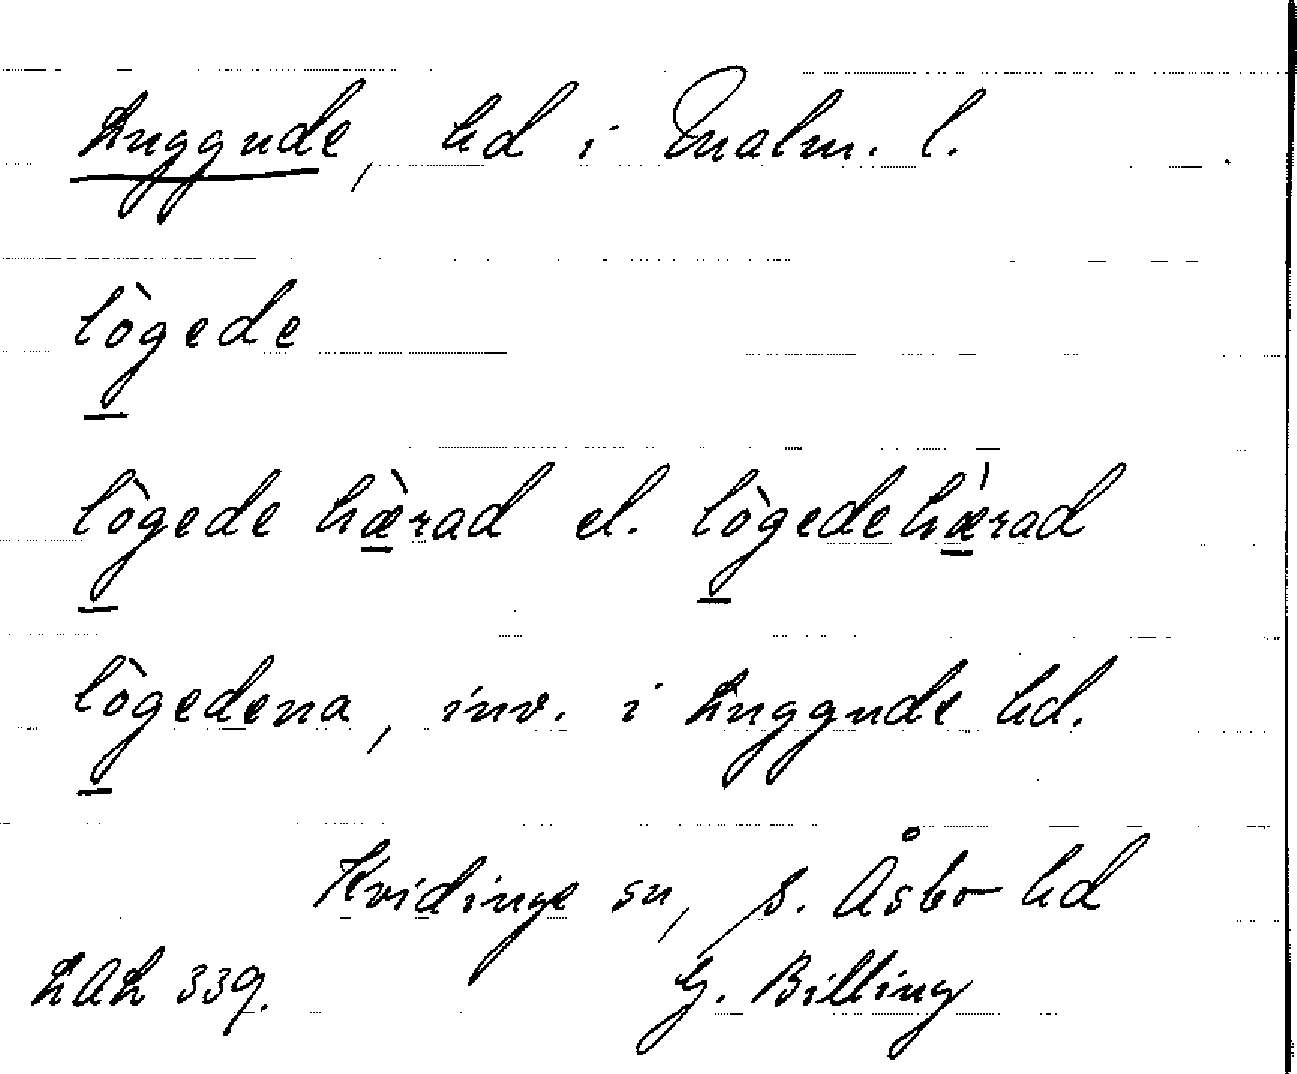 Luggude, hd i Malm. l.
lògede
lògede hæ̀rad el. lògedehæ̀rad
lògedena, inv. i Luggude hd.
Kvidinge sn, S. Åsbo hd
LAL 339. G. Billing